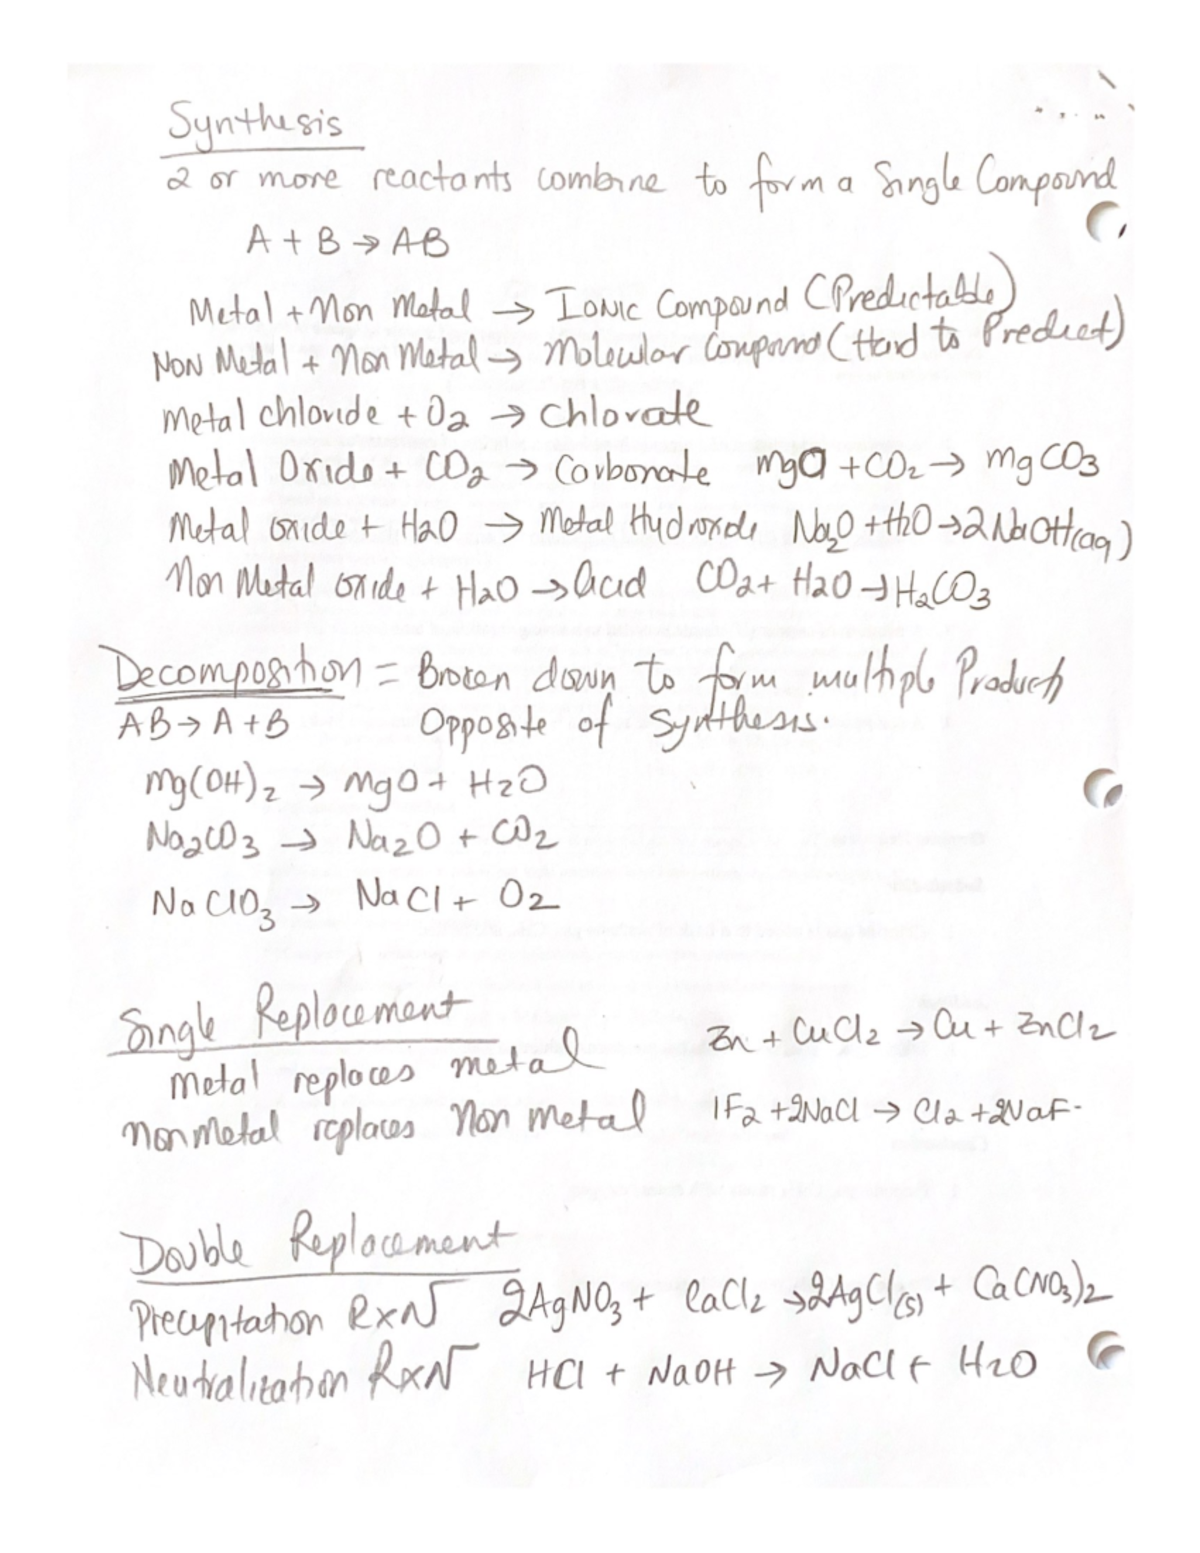 Synthesis
2 or more reactants combine to form a Single Compound
A + B → AB
Metal + Non Metal → Ionic Compound (Predictable)
Non Metal + Non Metal → Molecular Compound (Hard to Predict)
Metal chloride + O2 → Chlorate
Metal Oxide + CO2 → Carbonate MgO + CO2 → MgCO3
Metal oxide + H2O → Metal Hydroxide Na2O + H2O → 2NaOH(aq)
Non Metal oxide + H2O → acid CO2 + H2O → H2CO3
Decomposition = Broken down to form multiple Products
AB → A + B Opposite of Synthesis.
Mg(OH)2 → MgO + H2O
Na2CO3 → Na2O + CO2
NaClO3 → NaCl + O2
Single Replacement
Zn + CuCl2 → Cu + ZnCl2
Metal replaces metal
non Metal replaces Non metal 1F2 + 2NaCl → Cl2 + 2NaF
Double Replacement
Precipitation RxN 2AgNO3 + CaCl2 → 2AgCl(s) + Ca(NO3)2
Neutralization RxN HCl + NaOH → NaCl + H2O